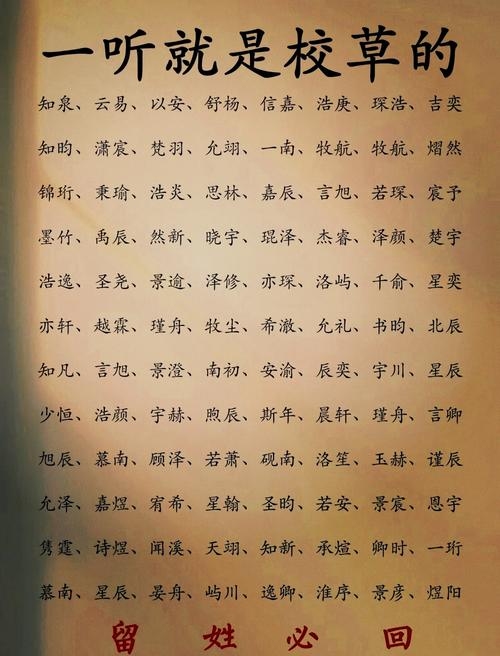 一听就是校草的
知泉、云易、以安、舒杨、信嘉、浩庚、琛浩、吉奕
知昀、潇宸、梵羽、允翊、一南、牧航、牧航、熠然
锦珩、秉瑜、浩炎、思林、嘉辰、言旭、若琛、宸予
墨竹、禹辰、然新、晓宇、琨泽、杰睿、泽颜、楚宇
浩逸、圣尧、景逾、泽修、亦琛、洛屿、千俞、星奕
亦轩、越霖、瑾舟、牧尘、希澈、允礼、书昀、北辰
知凡、言旭、景澄、南初、安渝、辰奕、宇川、星辰
少恒、浩颜、宇赫、煦辰、斯年、晨轩、瑾舟、言卿
旭辰、慕南、顾泽、若萧、砚南、洛笙、玉赫、谨辰
允泽、嘉煜、宥希、星翰、圣昀、若安、景宸、恩宇
隽霆、诗煜、闻溪、天翊、知新、承煊、卿时、一珩
慕南、星辰、晏舟、屿川、逸卿、淮序、景彦、煜阳
留姓必回